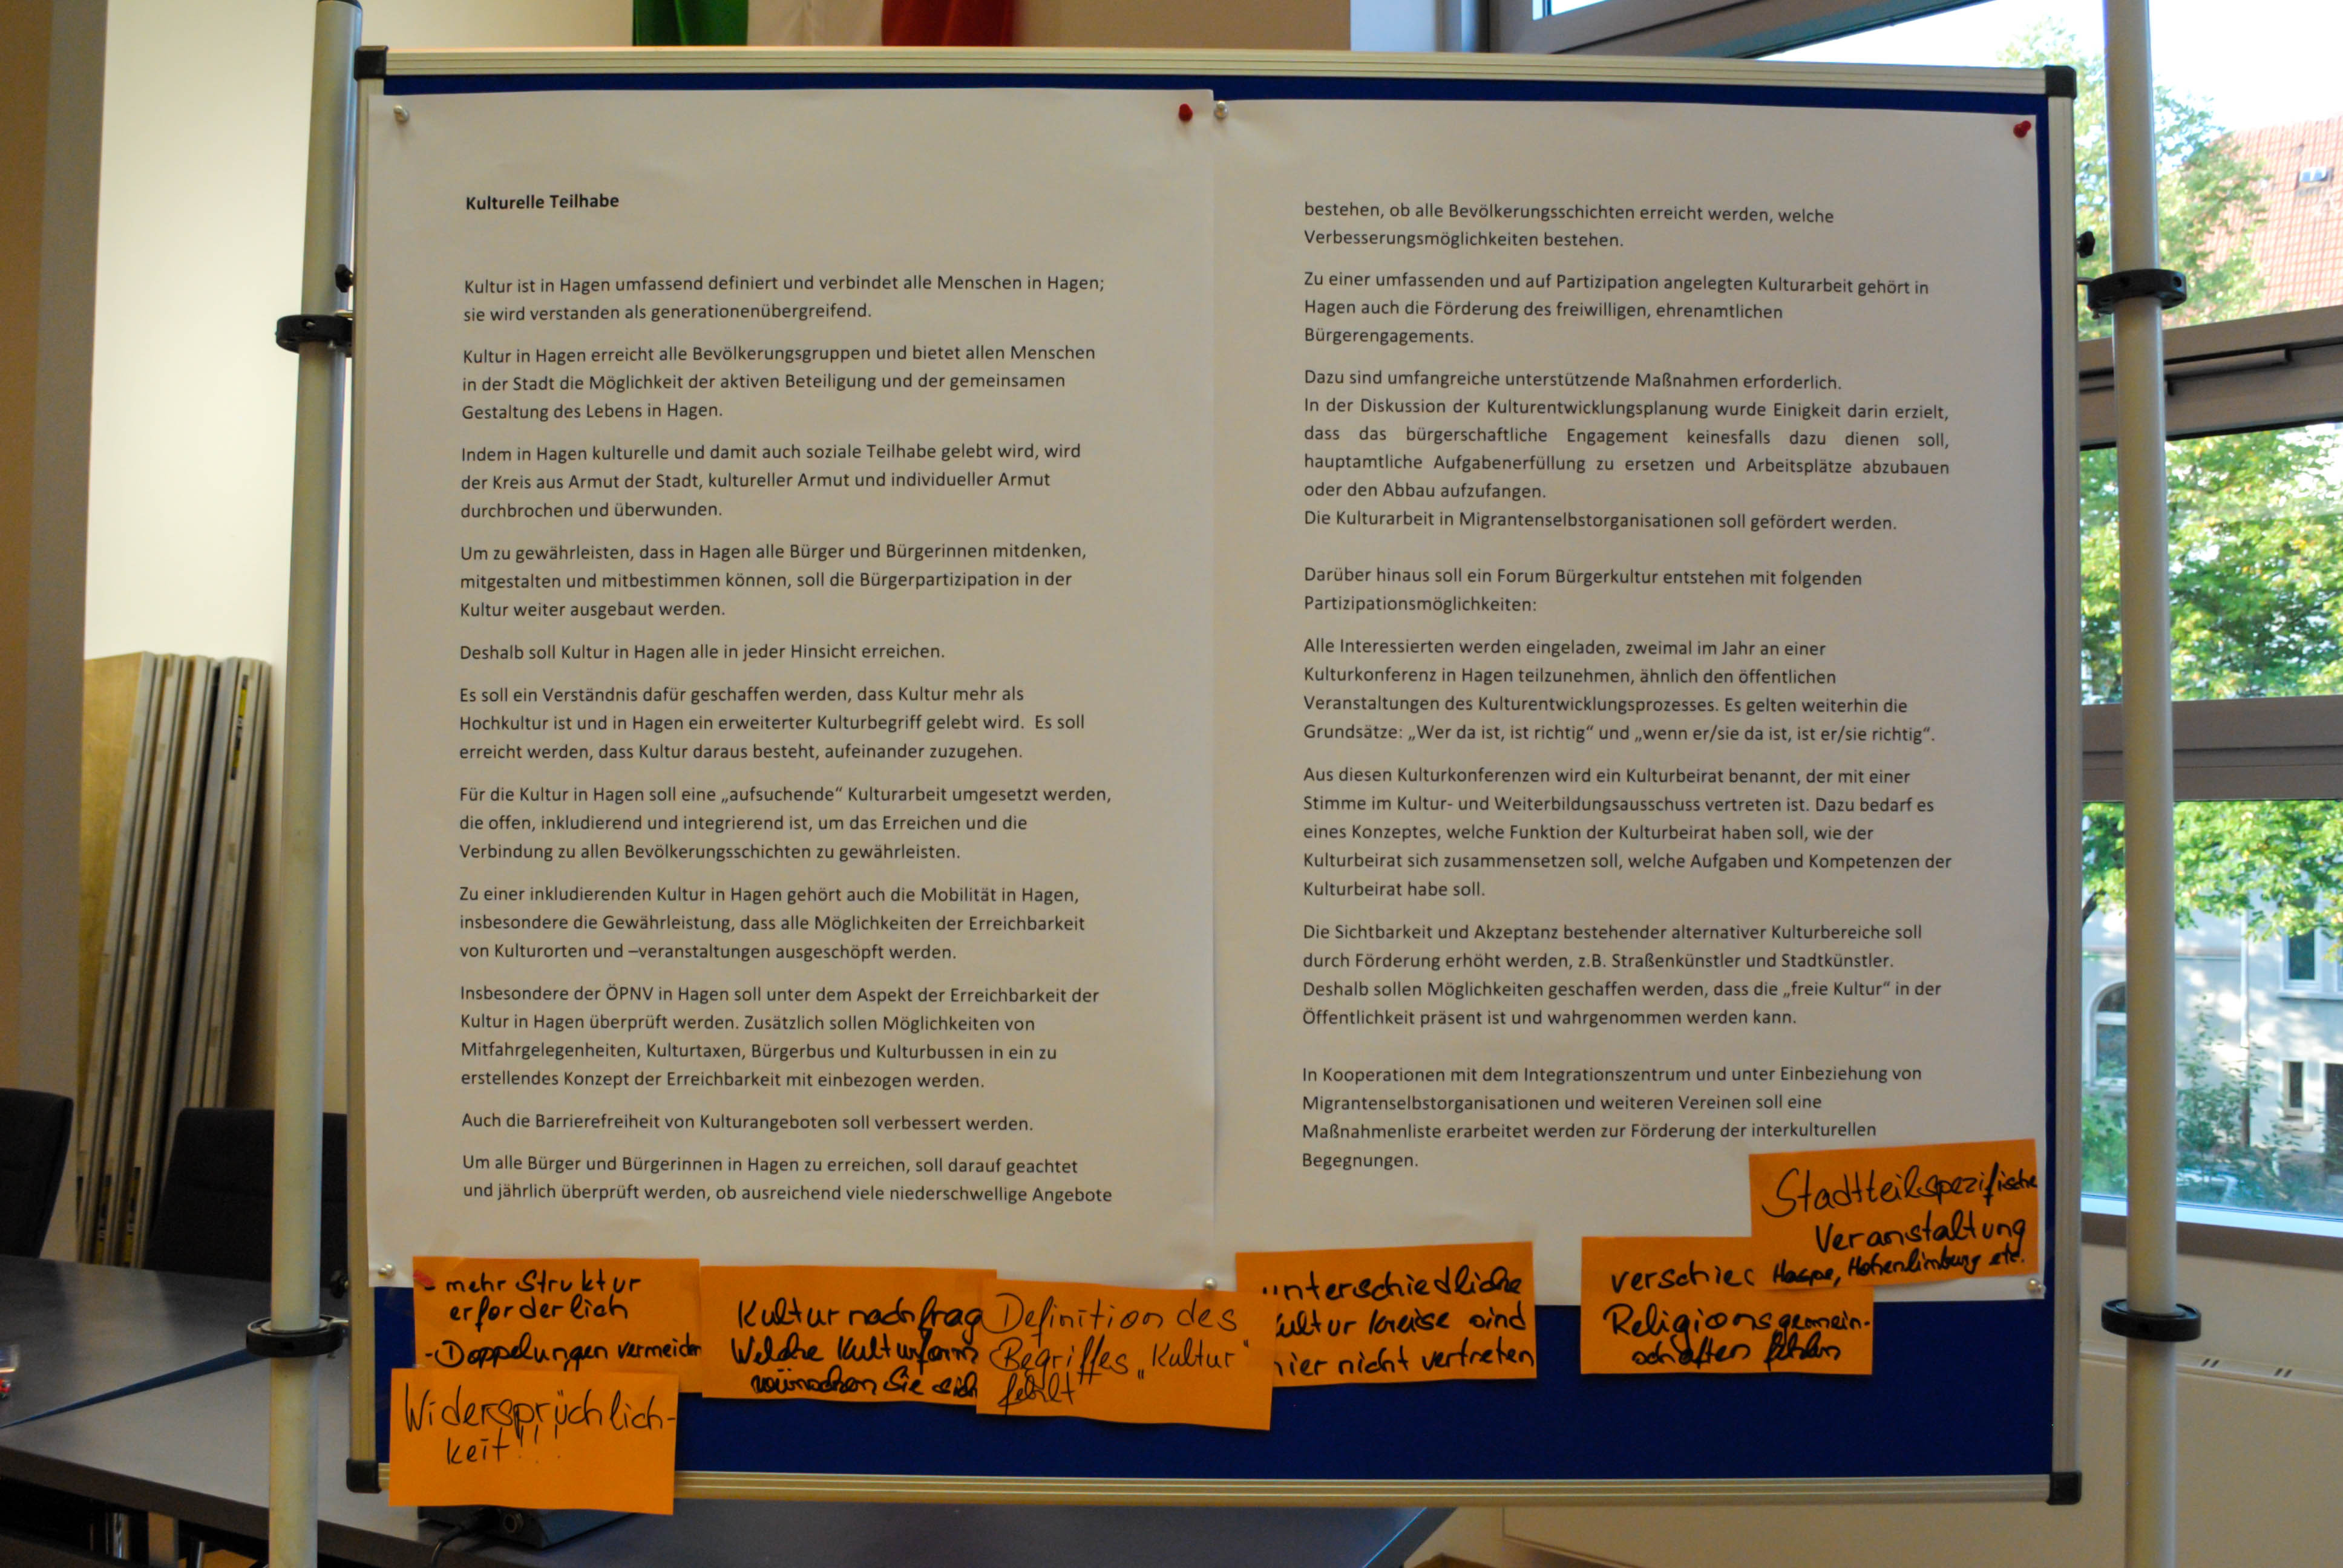 Kulturelle Teilhabe
Kultur ist in Hagen umfassend definiert und verbindet alle Menschen in Hagen;
sie wird verstanden als generationenübergreifend.
Kultur in Hagen erreicht alle Bevölkerungsgruppen und bietet allen Menschen
in der Stadt die Möglichkeit der aktiven Beteiligung und der gemeinsamen
Gestaltung des Lebens in Hagen.
Indem in Hagen kulturelle und damit auch soziale Teilhabe gelebt wird, wird
der Kreis aus Armut der Stadt, kultureller Armut und individueller Armut
durchbrochen und überwunden.
Um zu gewährleisten, dass in Hagen alle Bürger und Bürgerinnen mitdenken,
mitgestalten und mitbestimmen können, soll die Bürgerpartizipation in der
Kultur weiter ausgebaut werden.
Deshalb soll Kultur in Hagen alle in jeder Hinsicht erreichen.
Es soll ein Verständnis dafür geschaffen werden, dass Kultur mehr als
Hochkultur ist und in Hagen ein erweiterter Kulturbegriff gelebt wird. Es soll
erreicht werden, dass Kultur daraus besteht, aufeinander zuzugehen.
Für die Kultur in Hagen soll eine „aufsuchende“ Kulturarbeit umgesetzt werden,
die offen, inkludierend und integrierend ist, um das Erreichen und die
Verbindung zu allen Bevölkerungsschichten zu gewährleisten.
Zu einer inkludierenden Kultur in Hagen gehört auch die Mobilität in Hagen,
insbesondere die Gewährleistung, dass alle Möglichkeiten der Erreichbarkeit
von Kulturorten und –veranstaltungen ausgeschöpft werden.
Insbesondere der ÖPNV in Hagen soll unter dem Aspekt der Erreichbarkeit der
Kultur in Hagen überprüft werden. Zusätzlich sollen Möglichkeiten von
Mitfahrgelegenheiten, Kulturtaxen, Bürgerbus und Kulturbussen in ein zu
erstellendes Konzept der Erreichbarkeit mit einbezogen werden.
Auch die Barrierefreiheit von Kulturangeboten soll verbessert werden.
Um alle Bürger und Bürgerinnen in Hagen zu erreichen, soll darauf geachtet
und jährlich überprüft werden, ob ausreichend viele niederschwellige Angebote
bestehen, ob alle Bevölkerungsschichten erreicht werden, welche
Verbesserungsmöglichkeiten bestehen.
Zu einer umfassenden und auf Partizipation angelegten Kulturarbeit gehört in
Hagen auch die Förderung des freiwilligen, ehrenamtlichen
Bürgerengagements.
Dazu sind umfangreiche unterstützende Maßnahmen erforderlich.
In der Diskussion der Kulturentwicklungsplanung wurde Einigkeit darin erzielt,
dass das bürgerschaftliche Engagement keinesfalls dazu dienen soll,
hauptamtliche Aufgabenerfüllung zu ersetzen und Arbeitsplätze abzubauen
oder den Abbau aufzufangen.
Die Kulturarbeit in Migrantenselbstorganisationen soll gefördert werden.
Darüber hinaus soll ein Forum Bürgerkultur entstehen mit folgenden
Partizipationsmöglichkeiten:
Alle Interessierten werden eingeladen, zweimal im Jahr an einer
Kulturkonferenz in Hagen teilzunehmen, ähnlich den öffentlichen
Veranstaltungen des Kulturentwicklungsprozesses. Es gelten weiterhin die
Grundsätze: „Wer da ist, ist richtig“ und „wenn er/sie da ist, ist er/sie richtig“.
Aus diesen Kulturkonferenzen wird ein Kulturbeirat benannt, der mit einer
Stimme im Kultur- und Weiterbildungsausschuss vertreten ist. Dazu bedarf es
eines Konzeptes, welche Funktion der Kulturbeirat haben soll, wie der
Kulturbeirat sich zusammensetzen soll, welche Aufgaben und Kompetenzen der
Kulturbeirat habe soll.
Die Sichtbarkeit und Akzeptanz bestehender alternativer Kulturbereiche soll
durch Förderung erhöht werden, z.B. Straßenkünstler und Stadtkünstler.
Deshalb sollen Möglichkeiten geschaffen werden, dass die „freie Kultur“ in der
Öffentlichkeit präsent ist und wahrgenommen werden kann.
In Kooperationen mit dem Integrationszentrum und unter Einbeziehung von
Migrantenselbstorganisationen und weiteren Vereinen soll eine
Maßnahmenliste erarbeitet werden zur Förderung der interkulturellen
Begegnungen.
- mehr Struktur
erforderlich
- Doppelungen vermeiden
Widersprüchlich-
keit!!!
Kulturnachfrag
Welche Kulturform
wünschen Sie sich
Definition des
Begriffes „Kultur“
fehlt
unterschiedliche
ultur kreise sind
hier nicht vertreten
verschie
Religionsgemein-
schaften fehlen
Stadtteilspezifische
Veranstaltung
Haspe, Hohenlimburg etc.